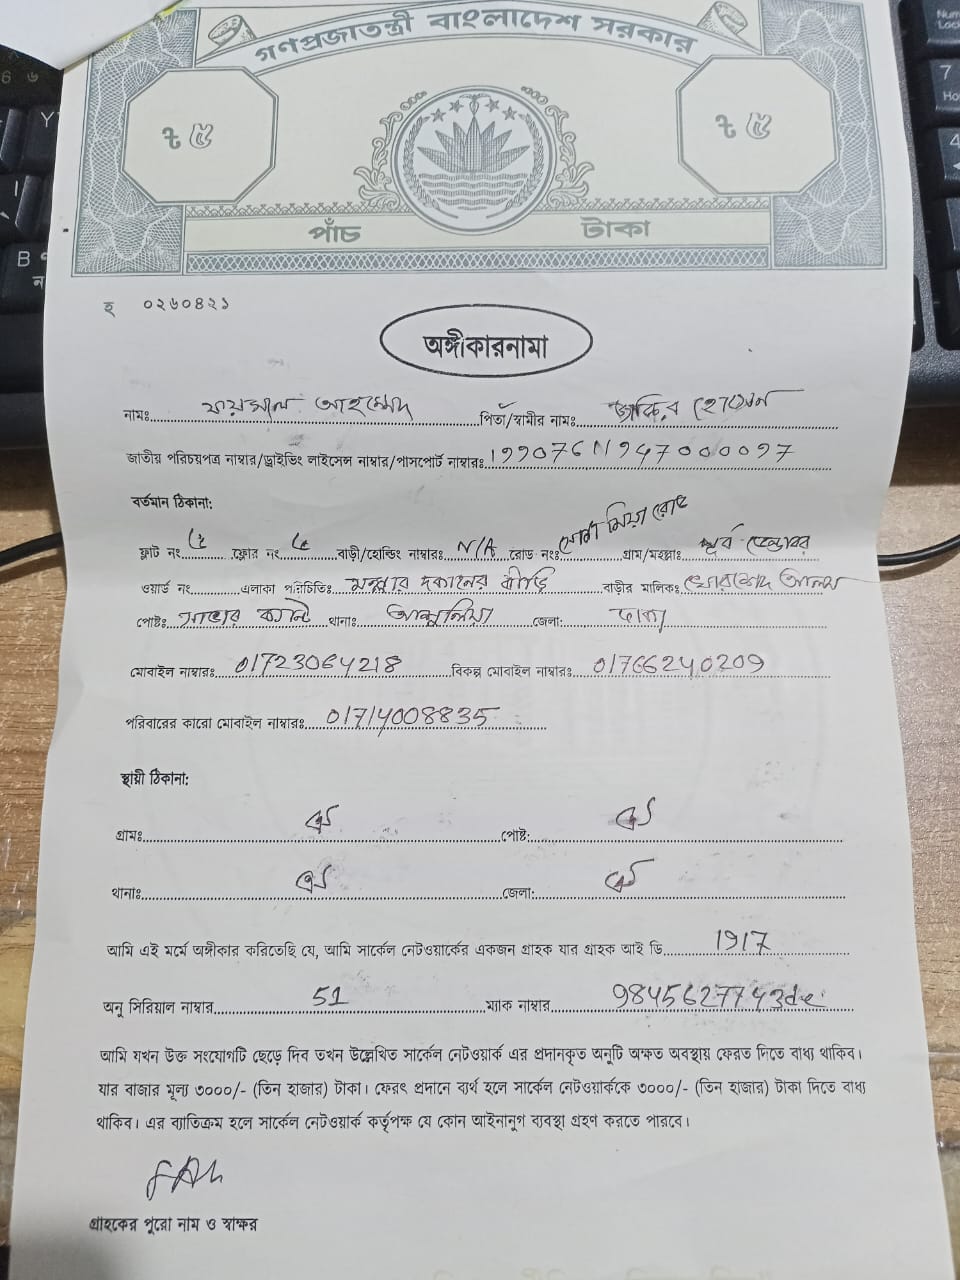 গণপ্রজাতন্ত্রী বাংলাদেশ সরকার
৳ ৫ ৳ ৫
পাঁচ টাকা
হ ০২৬০৪২১
অঙ্গীকারনামা
নামঃ ফয়সাল আহম্মেদ পিতা/স্বামীর নাম: জাকির হোসেন
জাতীয় পরিচয়পত্র নাম্বার/ড্রাইভিং লাইসেন্স নাম্বার/পাসপোর্ট নাম্বারঃ
বর্তমান ঠিকানা:
ফ্লাট নং ফ্লোর নং বাড়ী/হোল্ডিং নাম্বারঃ N/A রোড নংঃ মিয়া রোড গ্রাম/মহল্লাঃ পূর্ব
ওয়ার্ড নং এলাকা পরিচিতিঃ দকানের বাড়ীর মালিকঃ খোরশেদ আলম
পোষ্টঃ সাভার ক্যান্ট থানাঃ আশুলিয়া জেলা: ঢাকা
মোবাইল নাম্বারঃ 01723064218 বিকল্প মোবাইল নাম্বারঃ 01766240209
পরিবারের কারো মোবাইল নাম্বারঃ 01714008835
স্থায়ী ঠিকানা:
গ্রামঃ ঐ পোষ্ট: ঐ
থানাঃ ঐ জেলা: ঐ
আমি এই মর্মে অঙ্গীকার করিতেছি যে, আমি সার্কেল নেটওয়ার্কের একজন গ্রাহক যার গ্রাহক আই ডি 1917
অনু সিরিয়াল নাম্বার 51 ম্যাক নাম্বার 9845627743de
আমি যখন উক্ত সংযোগটি ছেড়ে দিব তখন উল্লেখিত সার্কেল নেটওয়ার্ক এর প্রদানকৃত অনুটি অক্ষত অবস্থায় ফেরত দিতে বাধ্য থাকিব।
যার বাজার মূল্য ৩০০০/- (তিন হাজার) টাকা। ফেরৎ প্রদানে ব্যর্থ হলে সার্কেল নেটওয়ার্ককে ৩০০০/- (তিন হাজার) টাকা দিতে বাধ্য
থাকিব। এর ব্যতিক্রম হলে সার্কেল নেটওয়ার্ক কর্তৃপক্ষ যে কোন আইনানুগ ব্যবস্থা গ্রহণ করতে পারবে।
গ্রাহকের পুরো নাম ও স্বাক্ষর